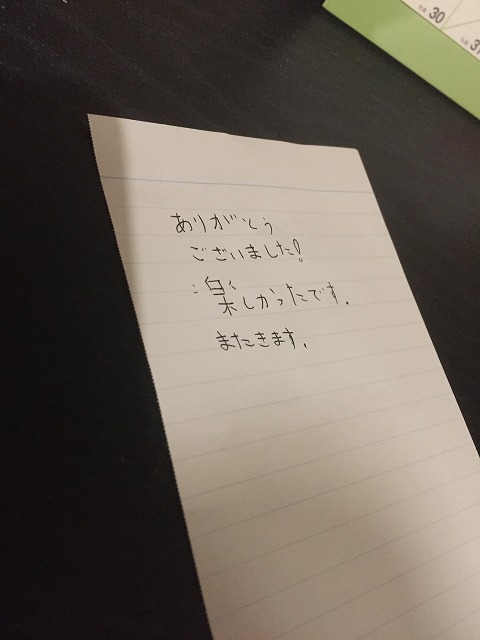 30
37
ありがとう
ございました!
楽しかったです.
またきます.